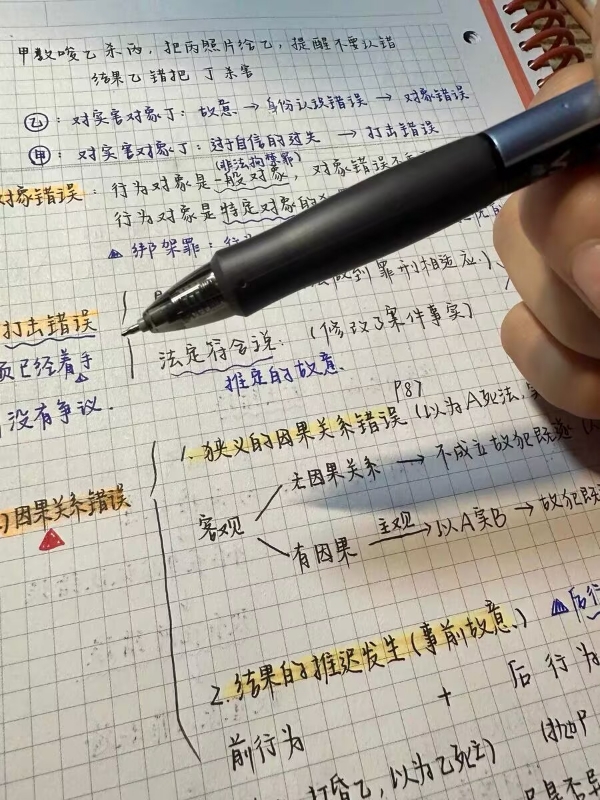 甲教唆乙杀丙，把丙照片给乙，提醒不要认错
结果乙错把丁杀害
乙：对实害对象丁：故意 → 身份认识错误 → 对象错误
甲：对实害对象丁：过于自信的过失 → 打击错误
(非法拘禁罪)
对象错误：行为对象是一般对象，对象错误不
行为对象是特定对象的
绑架罪：
做到罪刑相适应)
打击错误
法定符合说：(修改了案件事实)
已经着手
推定的故意.
没有争议.
P87
1. 狭义的因果关系错误 (以为A死法,
无因果关系 → 不成立故犯既遂
因果关系错误
客观
有因果 主观→ 以A实B → 故犯既
后行
2. 结果的推迟发生 (事前故意)
前行为 + 后行为
打昏乙，以为乙死了)